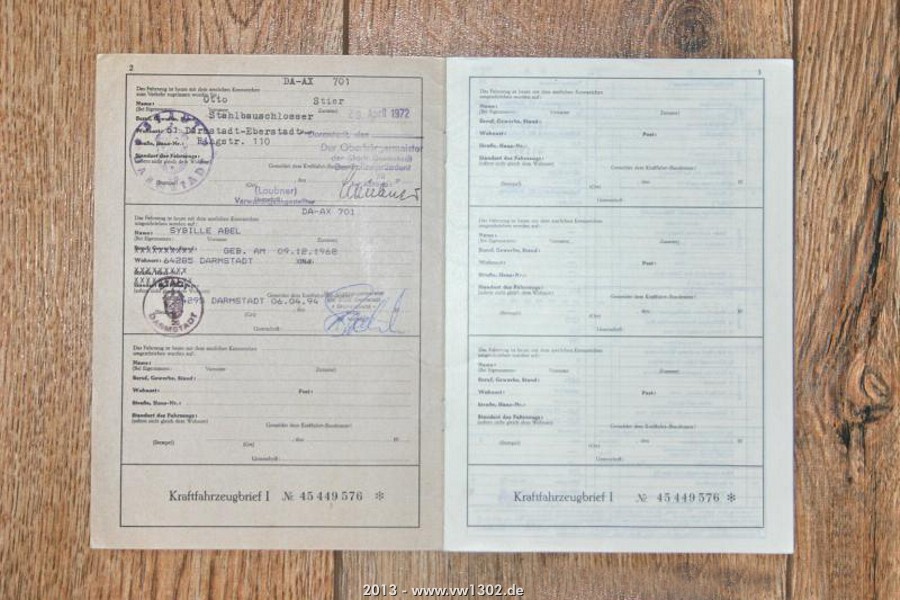 2
DA-AX 701
Das Fahrzeug ist heute mit dem amtlichen Kennzeichen
zum Verkehr zugelassen worden für
Name: Otto Stier
(Bei Eigennamen: Vorname Zuname)
Beruf, Gewerbe, Stand: Stahlbauschlosser
28. April 1972
Wohnort: 61 Darmstadt-Eberstadt
Darmstadt, den
Straße, Haus-Nr.: Ringstr. 110
Der Oberbürgermeister
der Stadt Darmstadt
Standort des Fahrzeugs:
(sofern nicht gleich dem Wohnort)
DARMSTADT
(Stempel)
(Ort)
(Laubner)
Verwaltungsangestellter
DA-AX 701
Das Fahrzeug ist heute mit dem amtlichen Kennzeichen
umgeschrieben worden auf:
Name: SYBILLE ABEL
Vorname Zuname
GEB. AM 09.12.1968
Wohnort: 64285 DARMSTADT
(sofern nicht gleich dem Wohnort)
STADT
DARMSTADT
DARMSTADT 06.04.94
(Ort)
Unterschrift:
Das Fahrzeug ist heute mit dem amtlichen Kennzeichen
umgeschrieben worden auf:
Name:
(Bei Eigennamen: Vorname Zuname)
Beruf, Gewerbe, Stand:
Wohnort: Post:
Straße, Haus-Nr.:
Standort des Fahrzeugs:
(sofern nicht gleich dem Wohnort)
(Stempel) (Ort) , den 19
Unterschrift:
Kraftfahrzeugbrief I № 45 449 576 *
Das Fahrzeug ist heute mit dem amtlichen Kennzeichen
umgeschrieben worden auf:
Name:
(Bei Eigennamen: Vorname Zuname)
Beruf, Gewerbe, Stand:
Wohnort: Post:
Straße, Haus-Nr.:
Standort des Fahrzeugs:
(sofern nicht gleich dem Wohnort)
(Stempel) (Ort) , den 19
Unterschrift:
Das Fahrzeug ist heute mit dem amtlichen Kennzeichen
umgeschrieben worden auf:
Name:
(Bei Eigennamen: Vorname Zuname)
Beruf, Gewerbe, Stand:
Wohnort: Post:
Straße, Haus-Nr.:
Standort des Fahrzeugs:
(sofern nicht gleich dem Wohnort)
(Stempel) (Ort) , den 19
Unterschrift:
Das Fahrzeug ist heute mit dem amtlichen Kennzeichen
umgeschrieben worden auf:
Name:
(Bei Eigennamen: Vorname Zuname)
Beruf, Gewerbe, Stand:
Wohnort: Post:
Straße, Haus-Nr.:
Standort des Fahrzeugs:
(sofern nicht gleich dem Wohnort)
(Stempel) (Ort) , den 19
Unterschrift:
Kraftfahrzeugbrief I № 45 449 576 *
2013 - www.vw1302.de